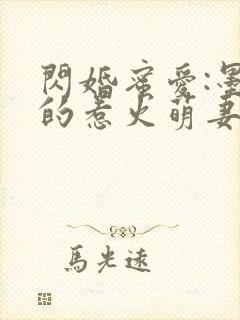 閃婚蜜愛:墨
的惹火萌妻
馬光遠